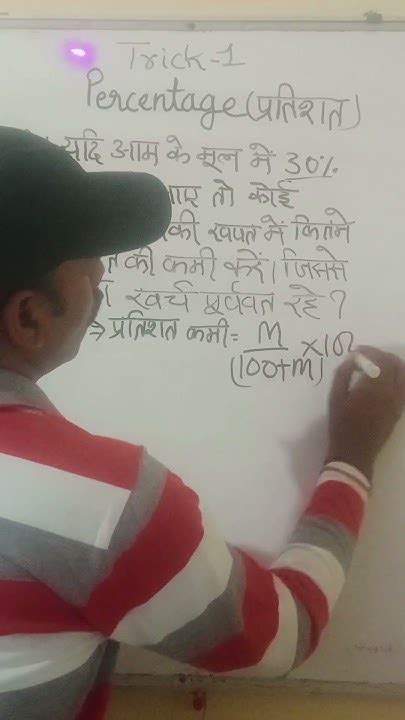 Trick-1
Percentage (प्रतिशत)
यदि आम के मूल्य में 30%
तो कोई
की खपत में कितने
की कमी करें। जिससे
खर्च पूर्ववत रहे?
⇒ प्रतिशत कमी = M/(100+m) ×10